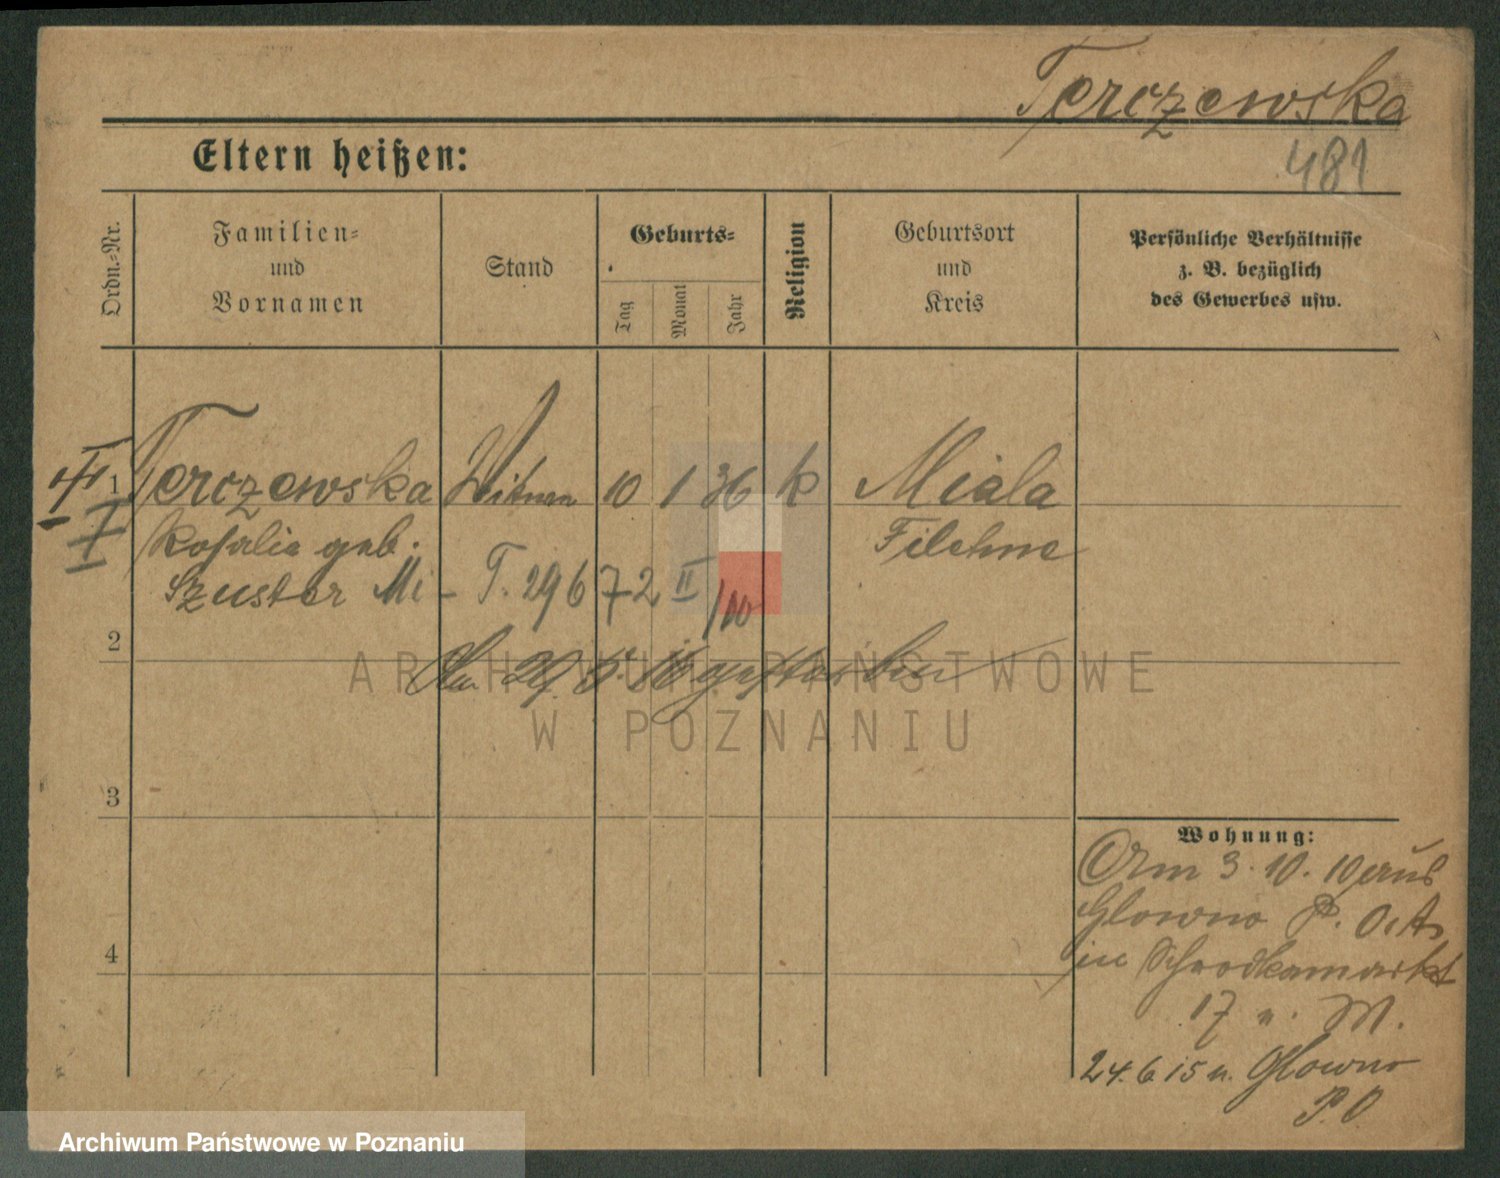 Terczewska
Eltern heißen:
481
Ordn.-Nr.
Familien-
und
Vornamen
Stand
Geburts-
Tag
Monat
Jahr
Religion
Geburtsort
und
Kreis
Persönliche Verhältnisse
z. B. bezüglich
des Gewerbes usw.
1
Terczewska
10 1 36 k
Miala
Rosalie geb.
Filehne
Szuster
T. 29672 II/10
2
29. 5. 16 gestorben
ARCHIWUM PAŃSTWOWE
W POZNANIU
3
Wohnung:
Am 3. 10. 10 aus
Glowno P. Ost
4
in Schrodkamarkt
17 n. M.
24. 6 15 n. Glowno
P. O
Archiwum Państwowe w Poznaniu